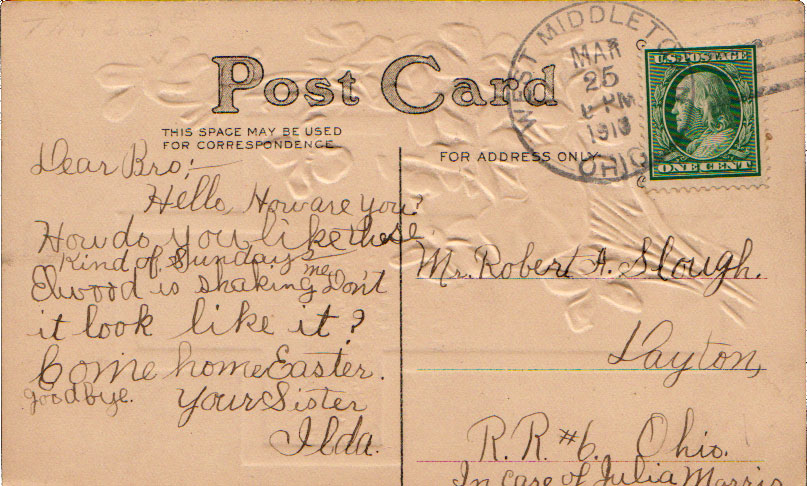 Post Card
THIS SPACE MAY BE USED
FOR CORRESPONDENCE
FOR ADDRESS ONLY
WEST MIDDLETO
MAR
25
PM
OHIO
U.S. POSTAGE
ONE CENT
Dear Bro;—
Hello, How are you?
How do you like these
Kind of Sundays
Elwood is shaking me Don't
it look like it?
Come home Easter.
goodbye. Your Sister
Ilda.
Mr. Robert A. Slough.
Dayton,
R.R. #6. Ohio.
In care of Julia Morris